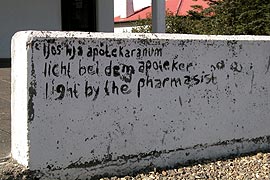 ljós hjá apótekaranum
licht bei dem apoteker
light by the pharmasist